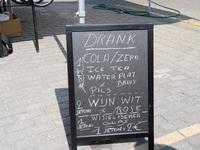 DRANK
COLA/ZERO
ICE TEA
WATER PLAT
BRUIS
PILS
2 WIJN WIT
ROSE
WISSELBEKER
GLAS
1 JETON = 2€